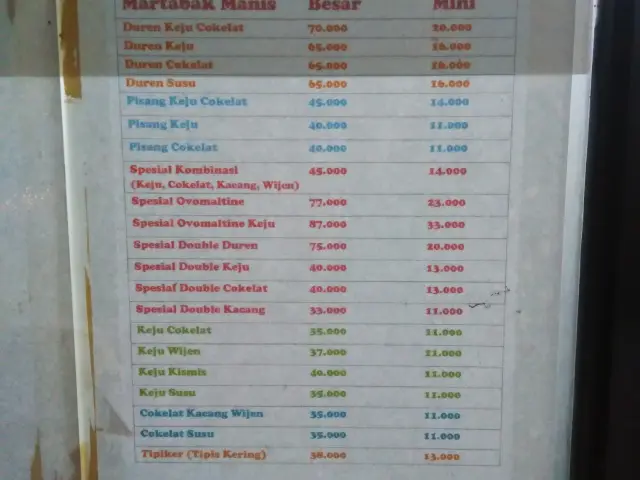 Martabak Manis Besar Mini
Duren Keju Cokelat 70.000 20.000
Duren Keju 65.000 16.000
Duren Cokelat 65.000 16.000
Duren Susu 65.000 16.000
Pisang Keju Cokelat 45.000 14.000
Pisang Keju 40.000 11.000
Pisang Cokelat 40.000 11.000
Spesial Kombinasi 45.000 14.000
(Keju, Cokelat, Kacang, Wijen)
Spesial Ovomaltine 77.000 23.000
Spesial Ovomaltine Keju 87.000 33.000
Spesial Double Duren 75.000 20.000
Spesial Double Keju 40.000 13.000
Spesial Double Cokelat 40.000 13.000
Spesial Double Kacang 33.000 11.000
Keju Cokelat 35.000 11.000
Keju Wijen 37.000 11.000
Keju Kismis 40.000 11.000
Keju Susu 35.000 11.000
Cokelat Kacang Wijen 35.000 11.000
Cokelat Susu 35.000 11.000
Tipiker (Tipis Kering) 38.000 13.000